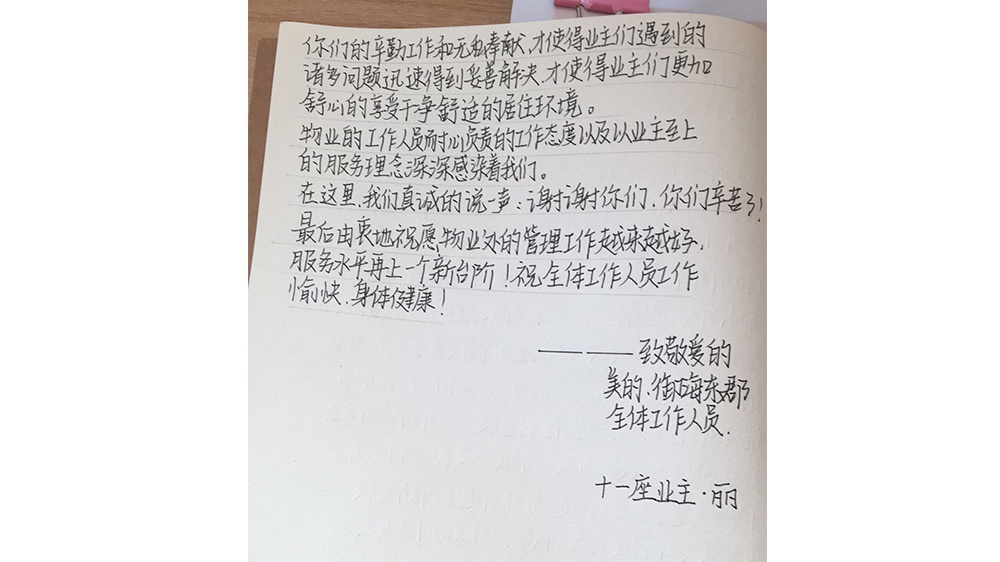 你们的辛勤工作和无私奉献,才使得业主们遇到的
诸多问题迅速得到妥善解决,才使得业主们更加
舒心的享受干净舒适的居住环境。
物业的工作人员耐心负责的工作态度以及以业主至上
的服务理念深深感染着我们。
在这里,我们真诚的说一声:谢谢你们,你们辛苦了!
最后由衷地祝愿物业处的管理工作越来越好,
服务水平再上一个新台阶!祝全体工作人员工作
愉快、身体健康!
——致敬爱的
美的、御海东郡
全体工作人员.
十一座业主·丽